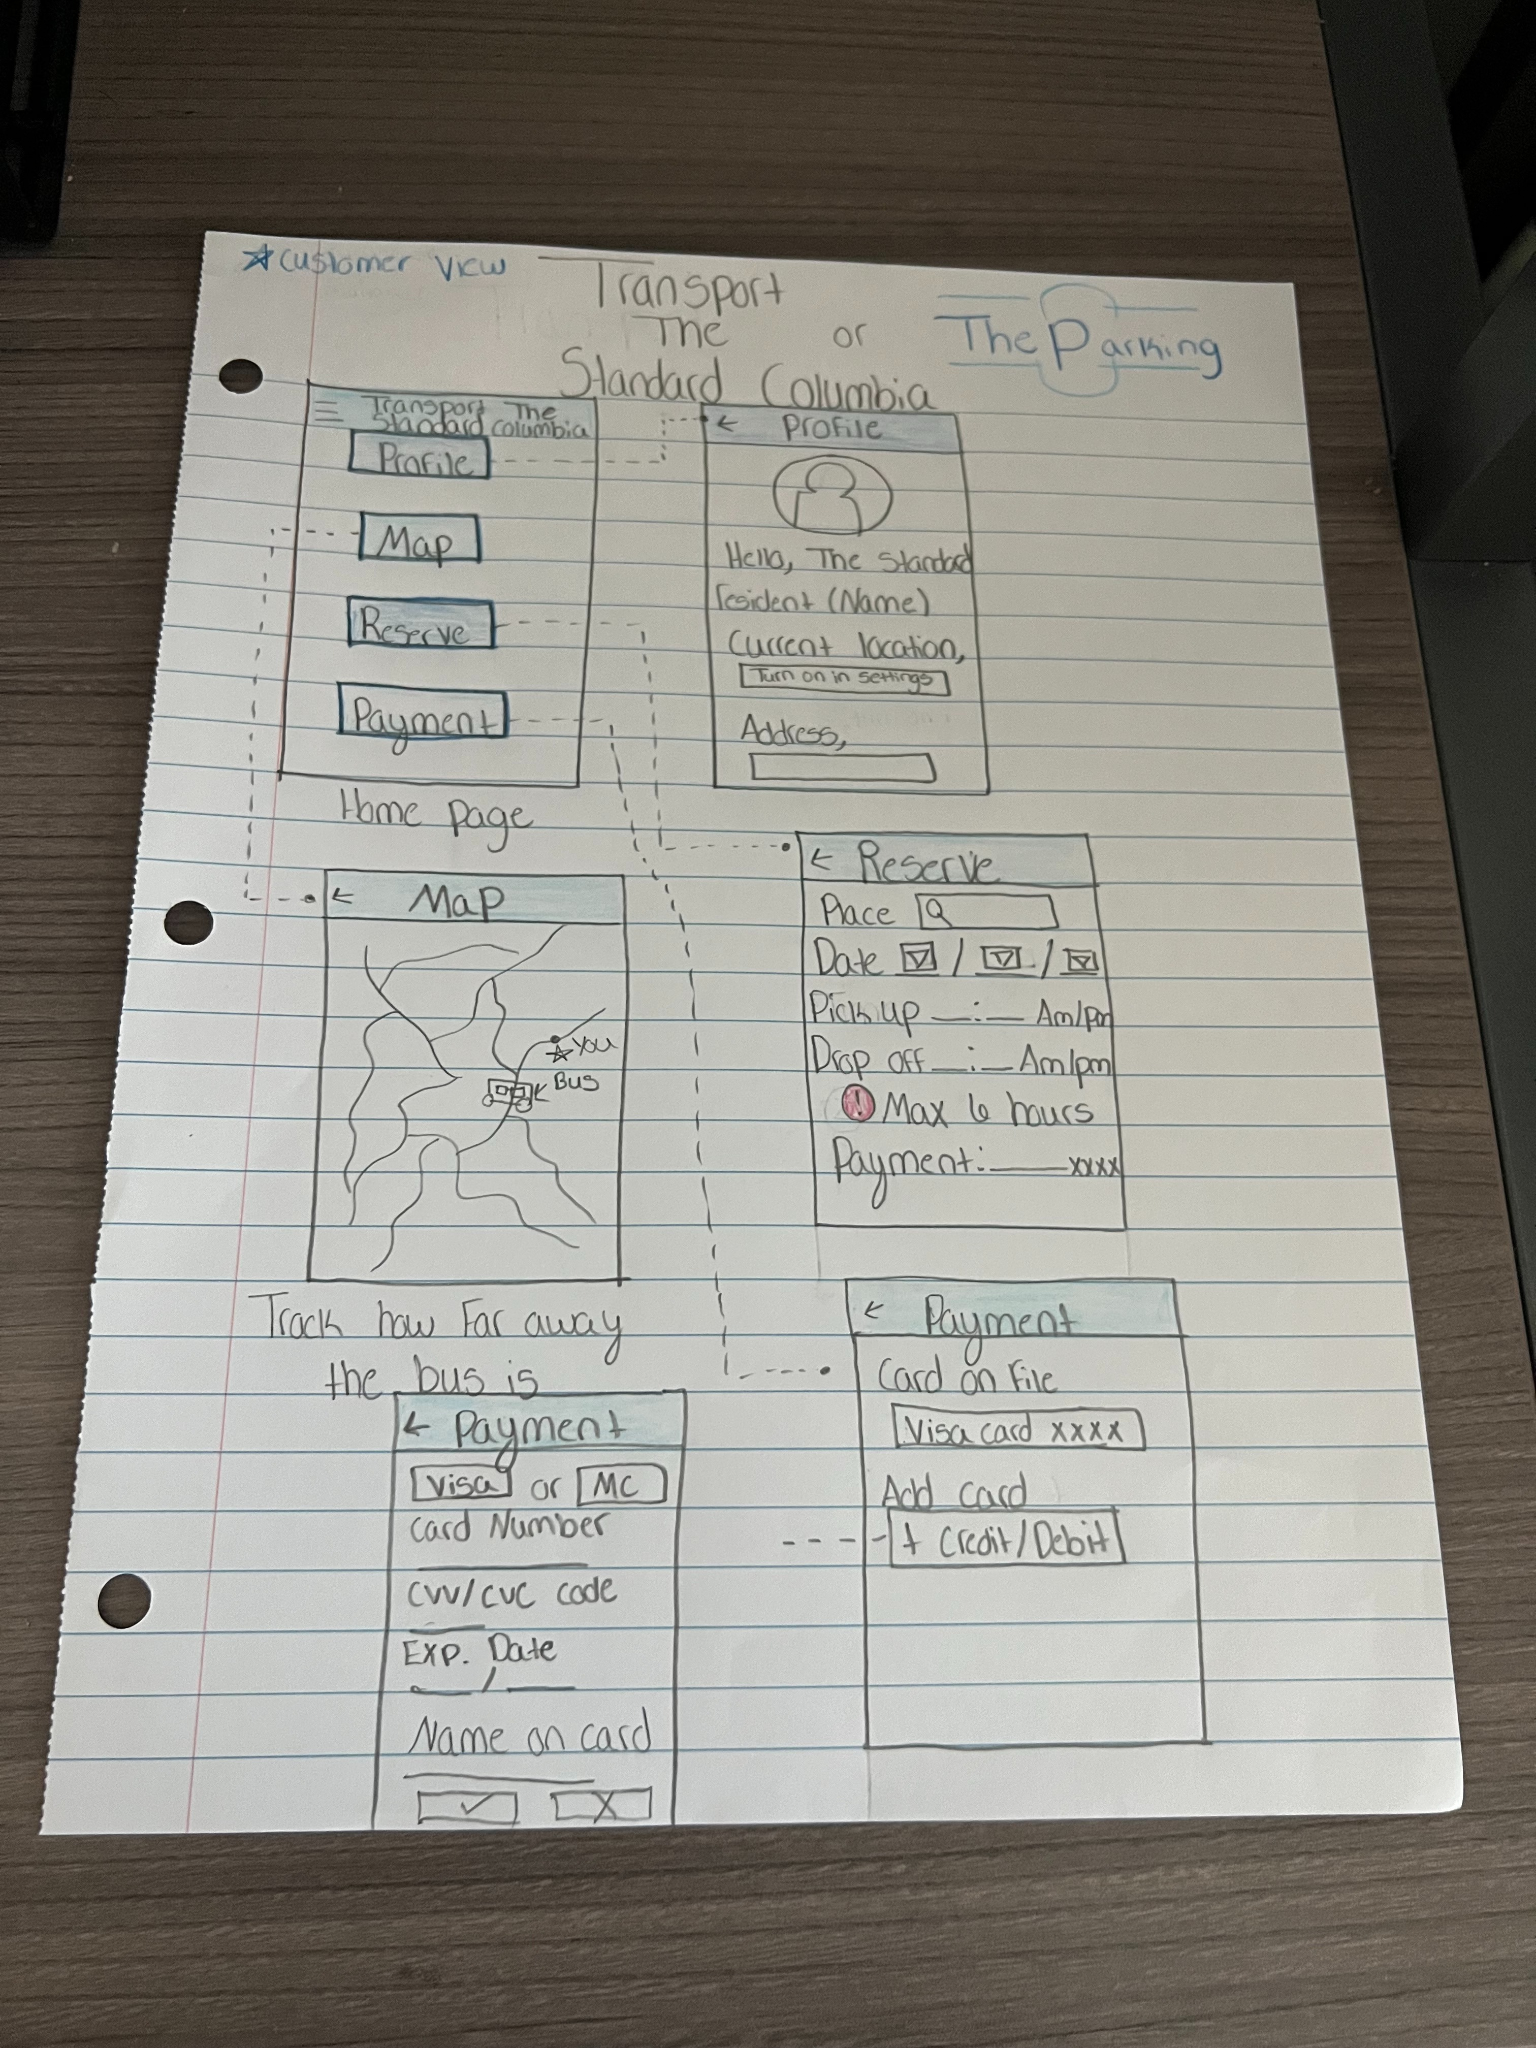 ☆ Customer View
Transport
The
Standard Columbia
or
The Parking
Transport The
Standard Columbia
Profile
Map
Reserve
Payment
Home Page
← Profile
Hello, The Standard
resident (Name)
Current location,
Turn on in settings
Address,
← Map
☆ You
← Bus
Track how Far away
the bus is
← Reserve
Place
Date / /
Pick up __:__ Am/pm
Drop off __:__ Am/pm
! Max 6 hours
Payment: ____xxxx
← Payment
Card on File
Visa card xxxx
Add card
+ Credit/Debit
← Payment
Visa or MC
Card Number
CVV/CVC code
Exp. Date
__ / __
Name on card
✓ X